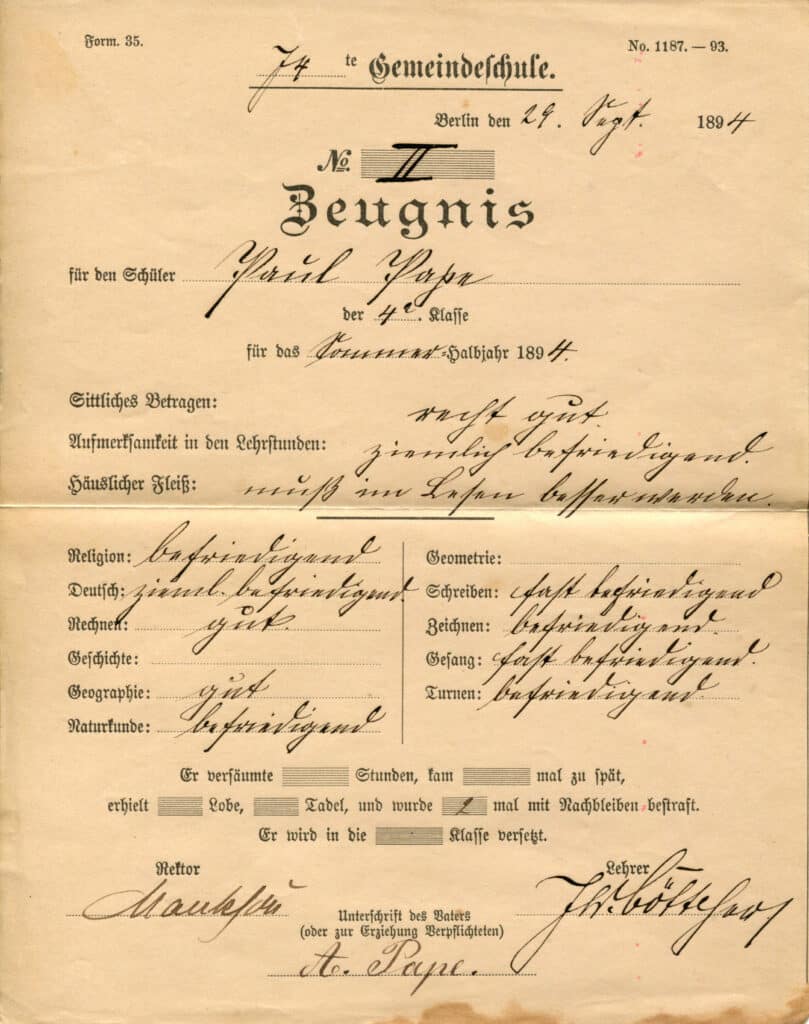 Form. 35.
No. 1187. — 93.
74 te Gemeindeschule.
Berlin den 29. Sept. 1894
No. II
Zeugnis
für den Schüler Paul Pape
der 4c. Klasse
für das Sommer-Halbjahr 1894.
Sittliches Betragen: recht gut.
Aufmerksamkeit in den Lehrstunden: ziemlich befriedigend.
Häuslicher Fleiß: muß im Lesen besser werden.
Religion: befriedigend
Deutsch: zieml. befriedigend.
Rechnen: gut.
Geschichte:
Geographie: gut
Naturkunde: befriedigend
Geometrie:
Schreiben: fast befriedigend
Zeichnen: befriedigend.
Gesang: fast befriedigend.
Turnen: befriedigend.
Er versäumte Stunden, kam mal zu spät,
erhielt Lobe, Tadel, und wurde 2 mal mit Nachbleiben bestraft.
Er wird in die Klasse versetzt.
Rektor
Lehrer
Böttcher
Unterschrift des Vaters
(oder zur Erziehung Verpflichteten)
A. Pape.